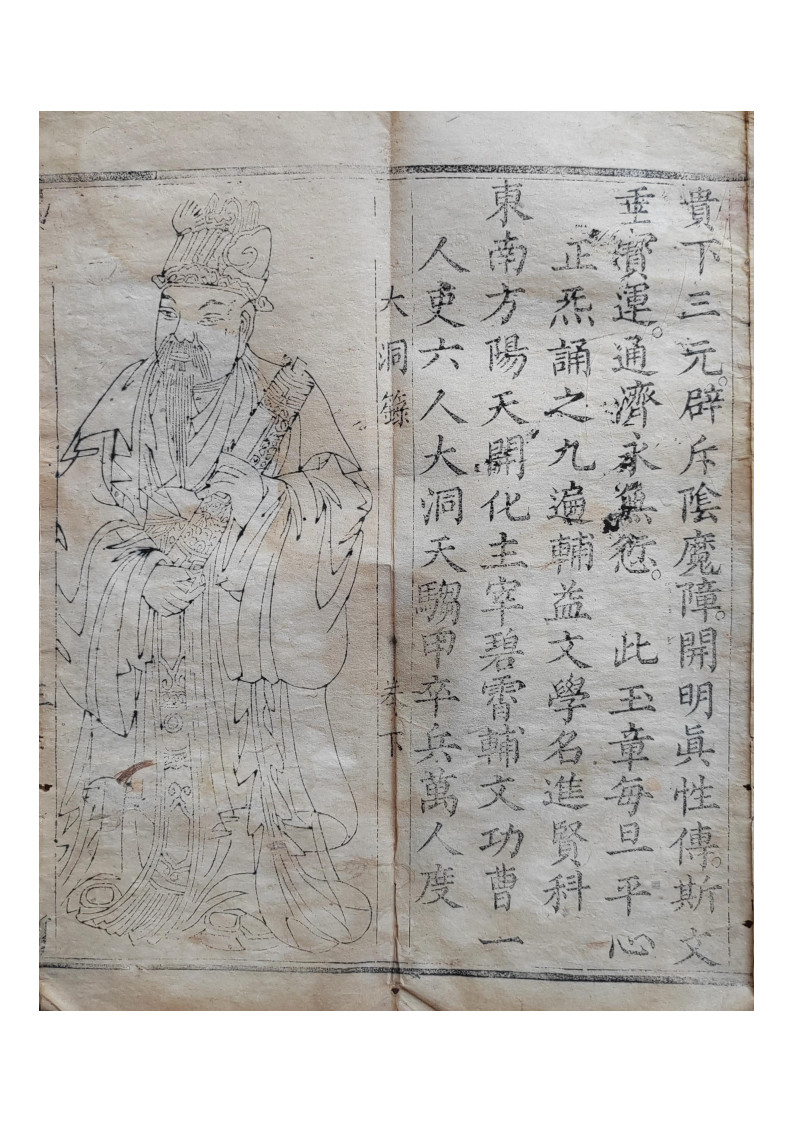 貴下三元。辟斥陰魔障。開明眞性傳。斯文
垂寳運。通濟永無愆。　此玉章每旦平心
正炁誦之九遍輔益文學名進賢科
東南方陽天開化主宰碧霄輔文功曹一
人吏六人大洞天騶甲卒兵萬人度
大洞籙　卷下